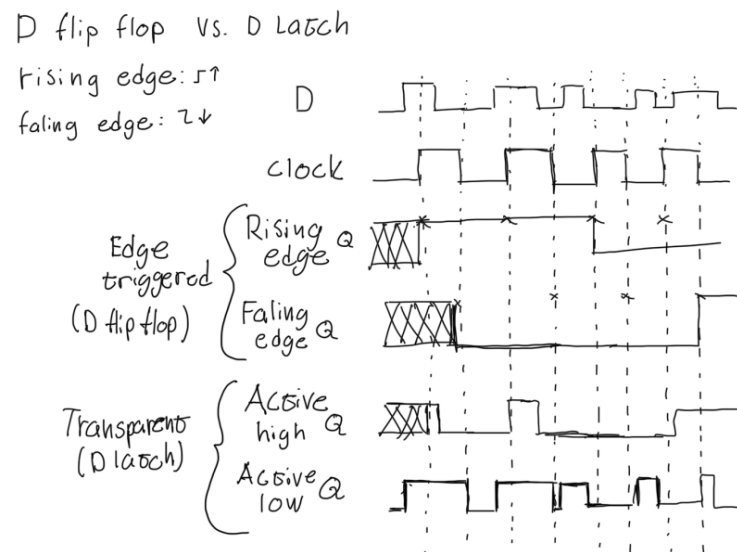 D flip flop vs. D Latch
rising edge: ↑
faling edge: ↓
D
clock
Edge triggered (D flip flop)
Rising edge Q
Faling edge Q
Transparent (D latch)
Active high Q
Active low Q